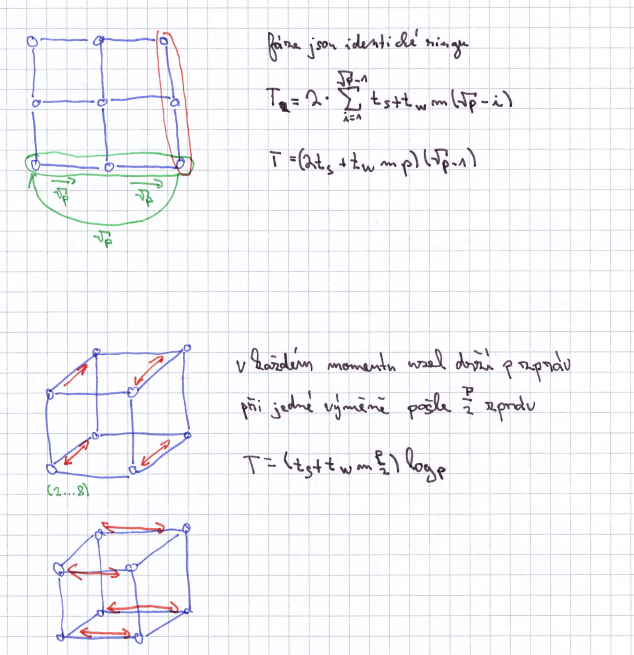 fáze jsou identické ringu
T = 2 · \sum_{i=1}^{√p-1} t_s + t_w m (√p - i)
T = (2t_s + t_w m p)(√p - 1)
√p √p
√p
v každém momentu uzel drží p zpráv
při jedné výměně pošle \frac{p}{2} zpráv
T = (t_s + t_w m \frac{p}{2}) log p
(2...8)